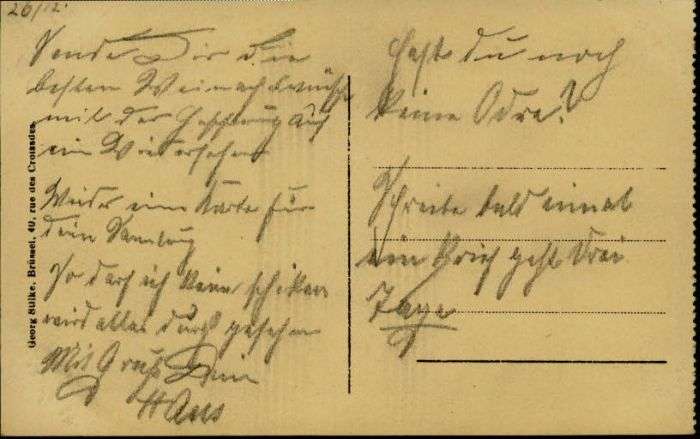 26/12.
Sende Dir die
besten Weinachtswünsche
mit der Hoffnung auf
ein Wiedersehen
Wieder eine Karte für
dein Samlung
So darf ich keine schiken
wird alles durch gesehen
Mit Gruß Dein
Hans
Hast du noch
keine Odre?
Schreibe bald einmal
ein Brief geht drei
Tage
Georg Stilke, Brüssel, 40, rue des Croisades